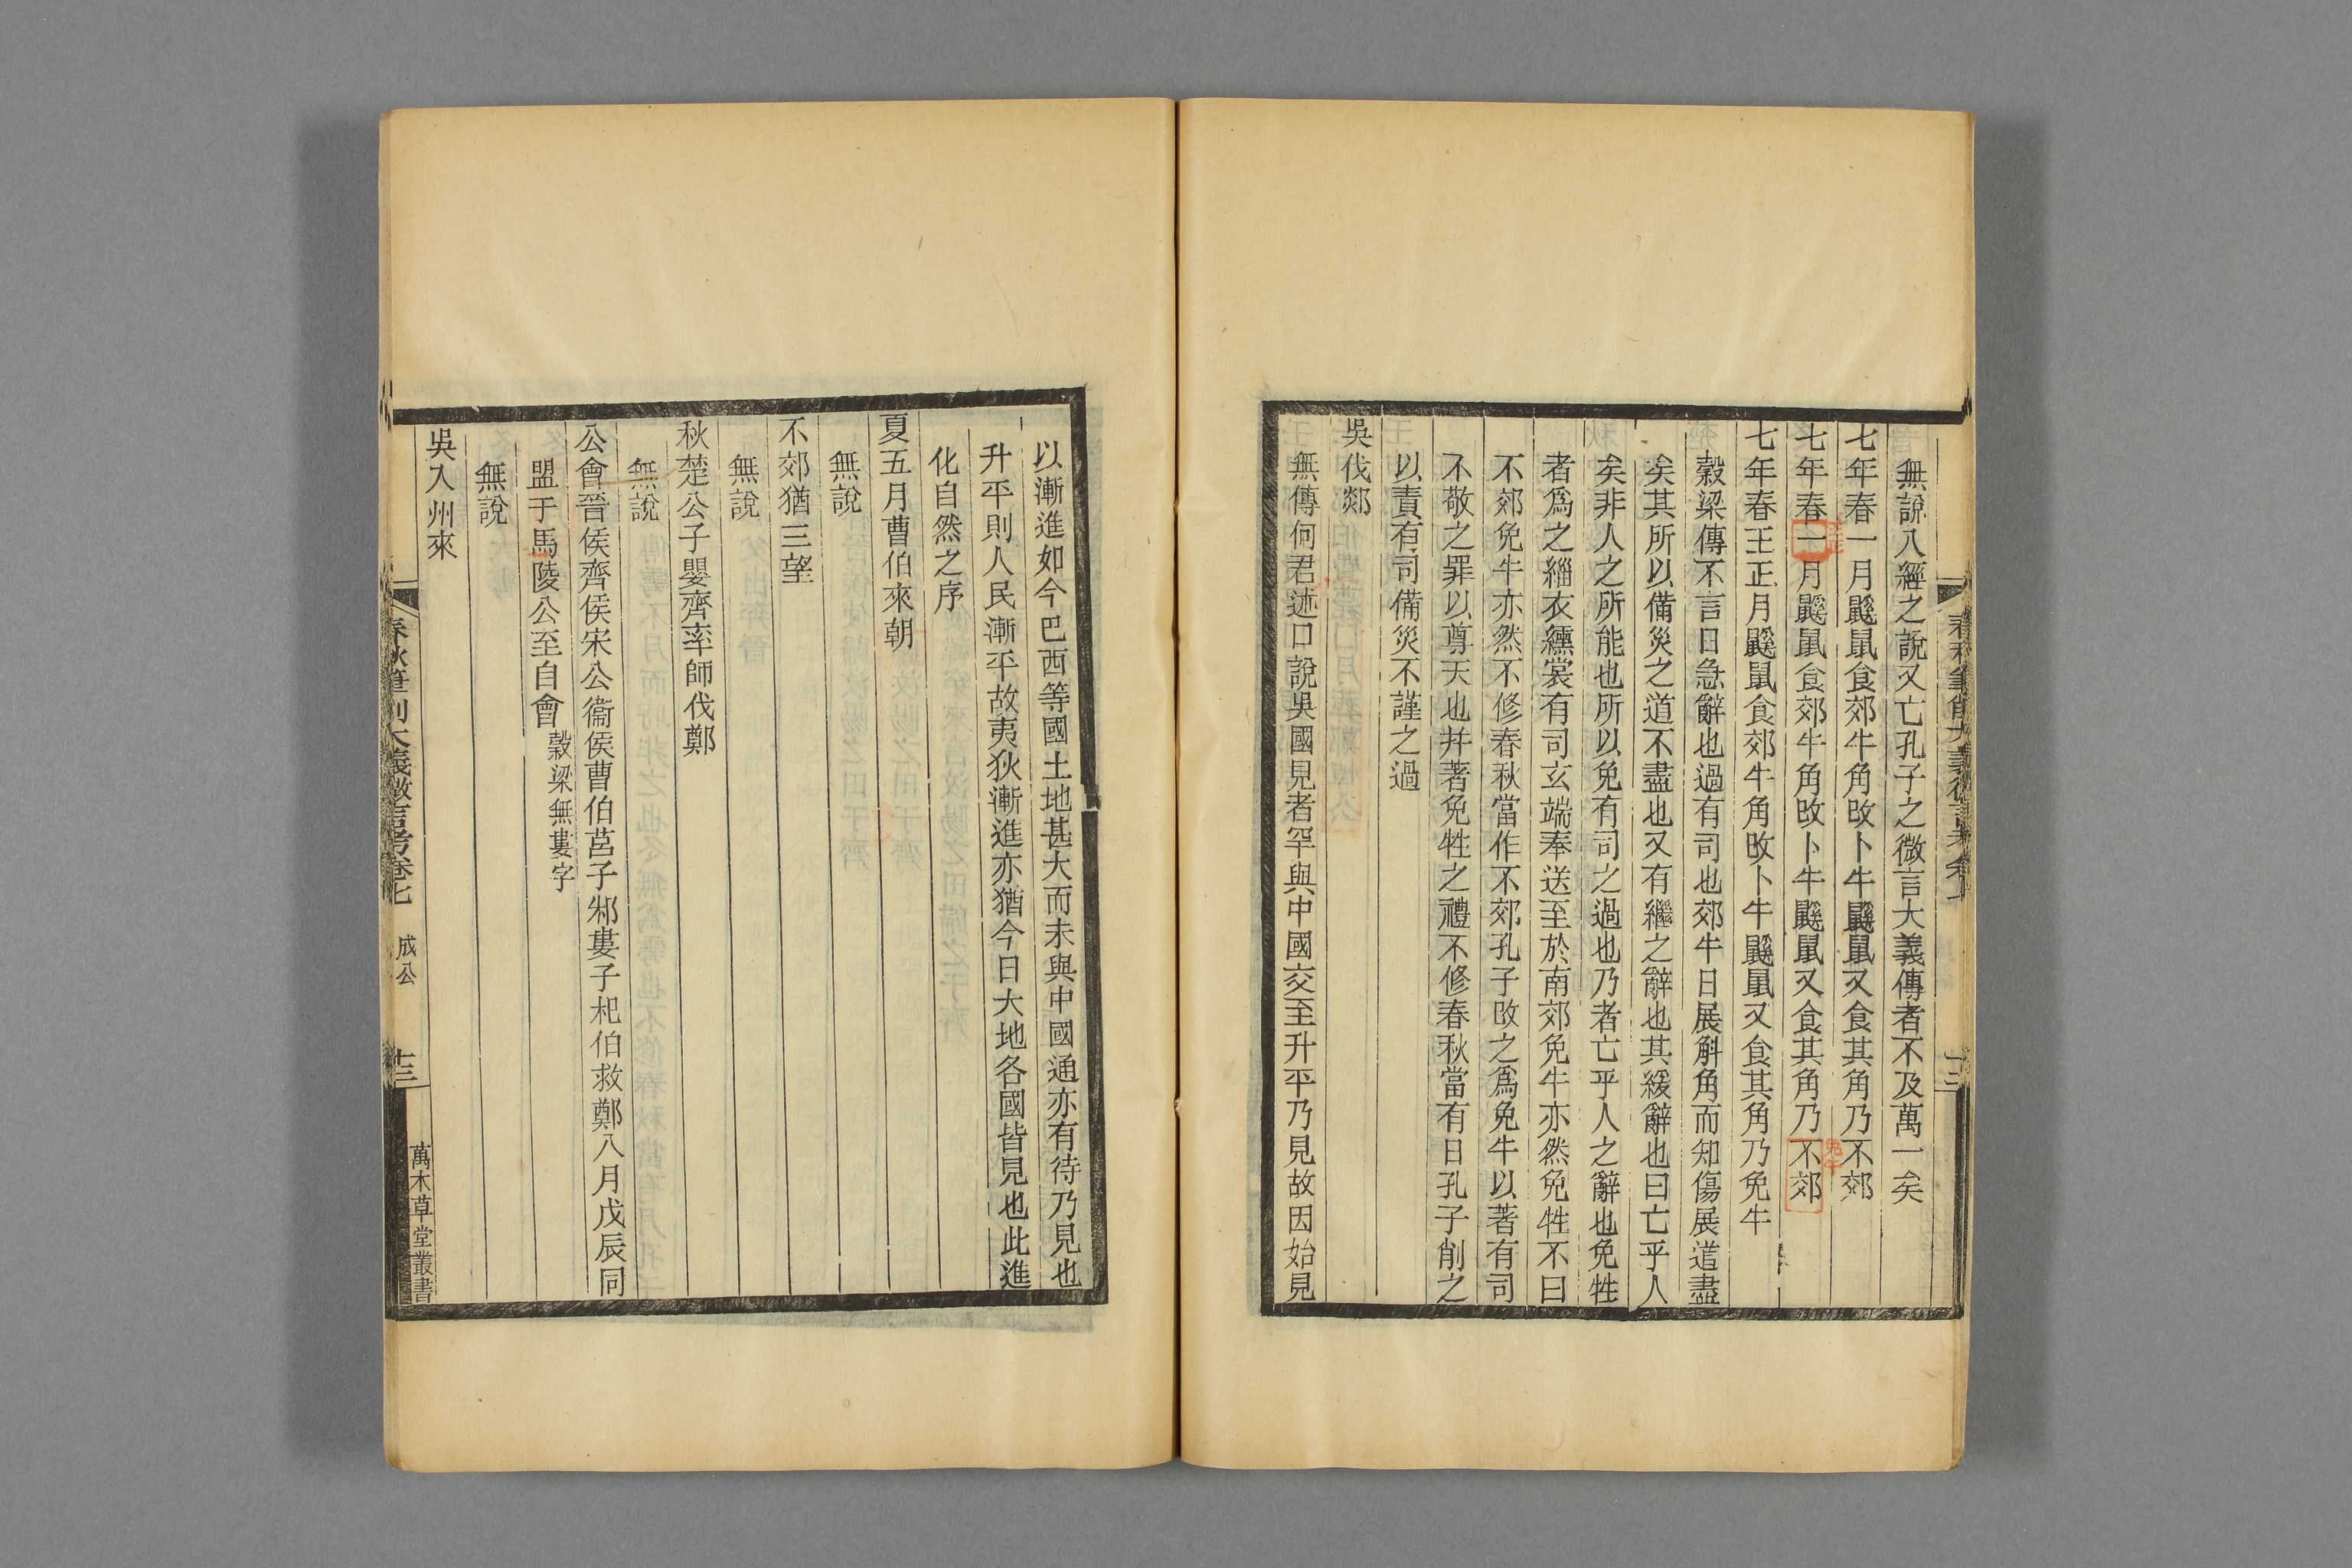 無說八經之說又亡孔子之微言大義傳者不及萬一矣
七年春一月鼷鼠食郊牛角改卜牛鼷鼠又食其角乃不郊
王正
免牛
七年春一月鼷鼠食郊牛角改卜牛鼷鼠又食其角乃不郊
七年春王正月鼷鼠食郊牛角改卜牛鼷鼠又食其角乃免牛
穀梁傳不言日急辭也過有司也郊牛日展斛角而知傷展道盡
矣其所以備災之道不盡也又有繼之辭也其緩辭也曰亡乎人
矣非人之所能也所以免有司之過也乃者亡乎人之辭也免牲
者爲之緇衣纁裳有司玄端奉送至於南郊免牛亦然免牲不曰
不郊免牛亦然不修春秋當作不郊孔子改之爲免牛以著有司
不敬之罪以尊天也并著免牲之禮不修春秋當有日孔子削之
以責有司備災不謹之過
吳伐郯
無傳何君述口說吳國見者罕與中國交至升平乃見故因始見
以漸進如今巴西等國土地甚大而未與中國通亦有待乃見也
升平則人民漸平故夷狄漸進亦猶今日大地各國皆見也此進
化自然之序
夏五月曹伯來朝
無說
不郊猶三望
無說
秋楚公子嬰齊率師伐鄭
無說
公會晉侯齊侯宋公衞侯曹伯莒子邾婁子杞伯救鄭八月戊辰同
盟于馬陵公至自會 穀梁無婁字
無說
吳入州來
春秋筆削大義微言考卷七 成公 十三 萬木草堂叢書